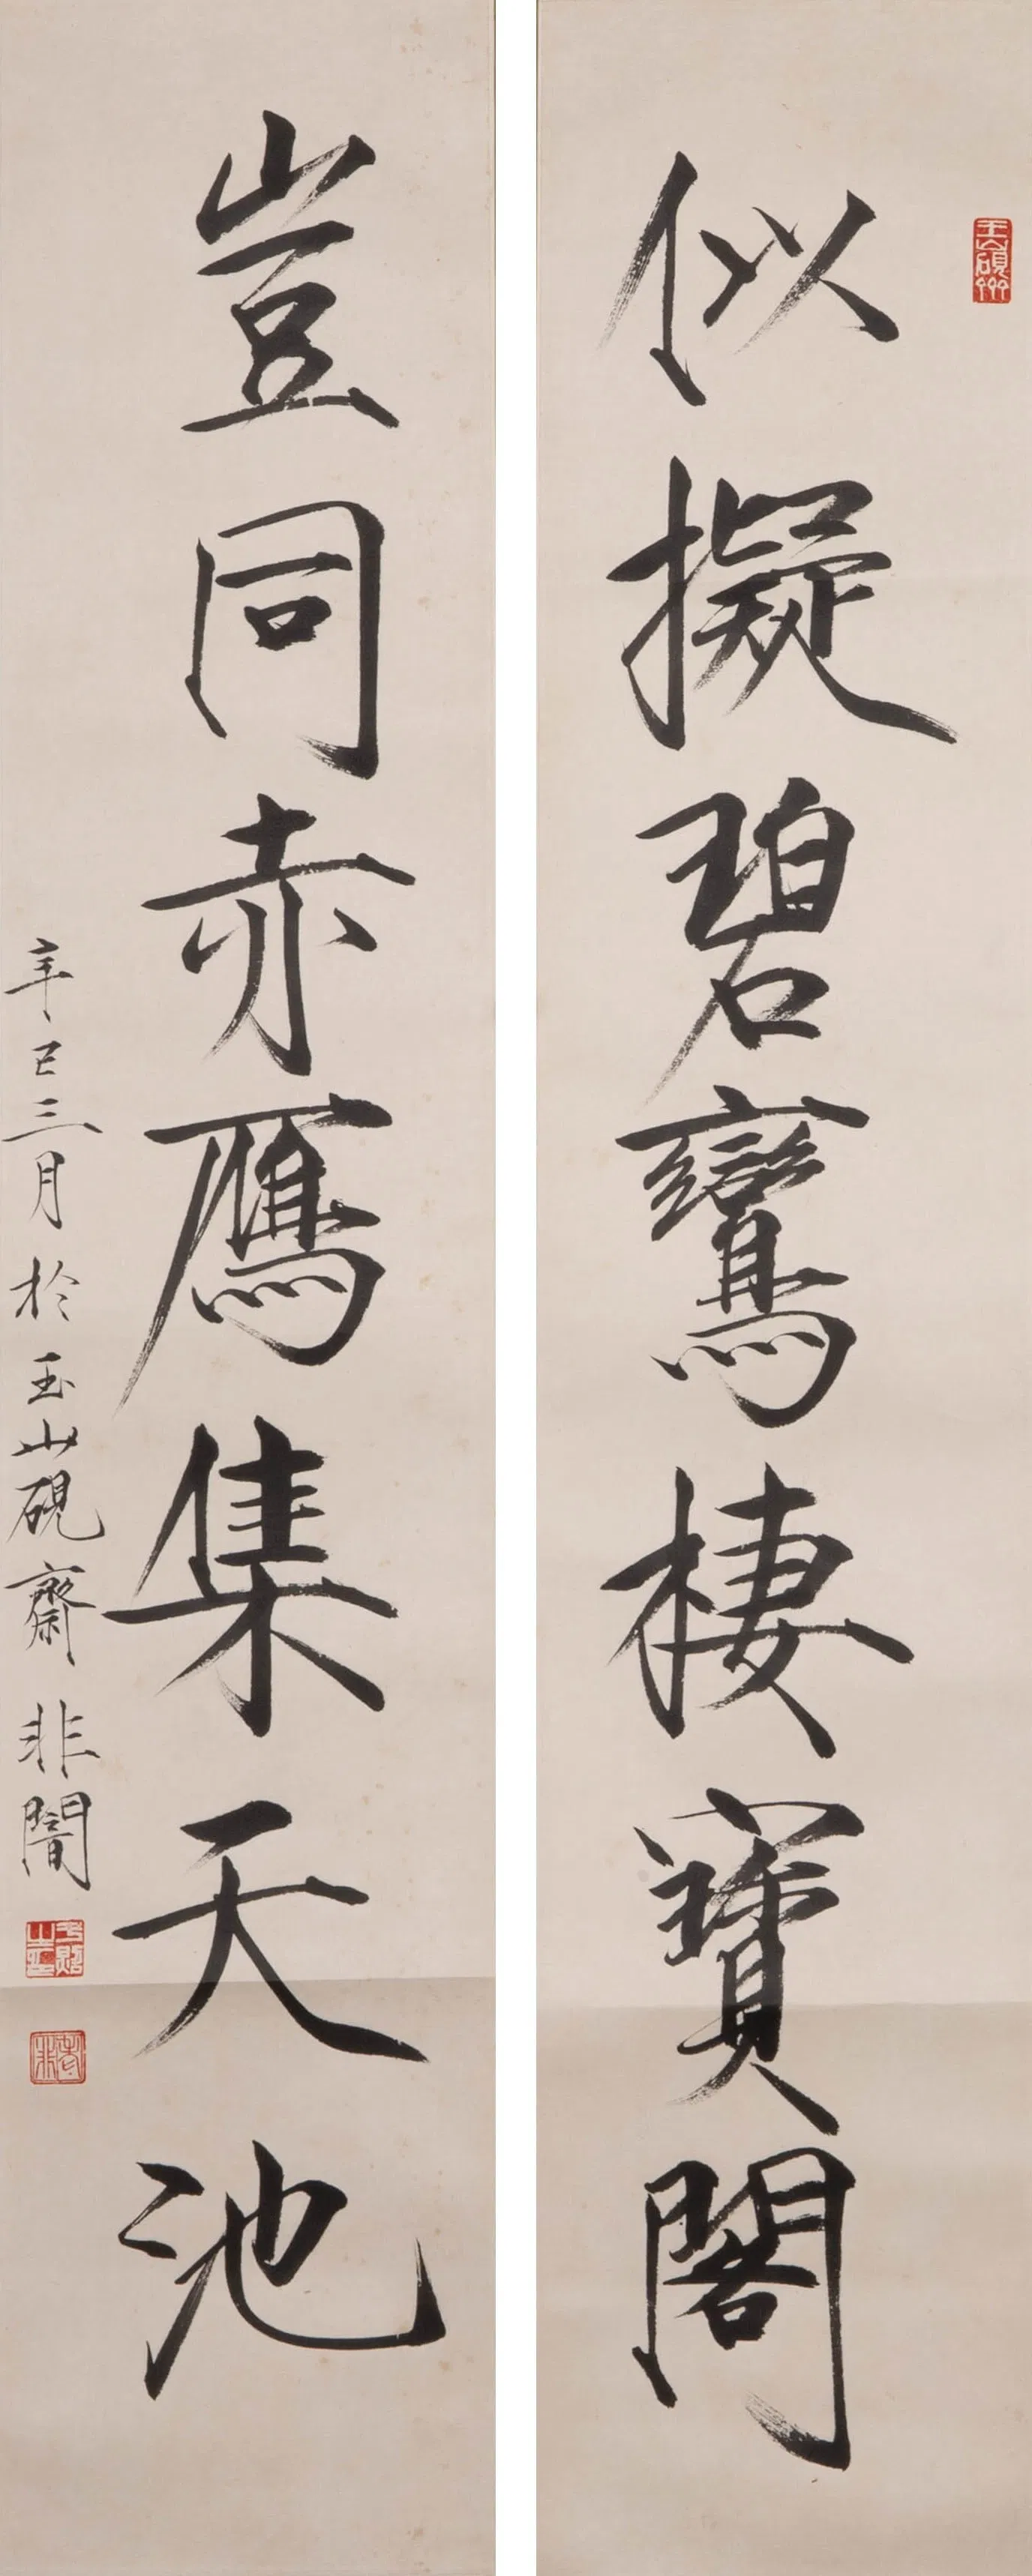 似擬碧鸞棲寶閣
豈同赤鴈集天池
辛巳三月於玉山硯齋 非闇